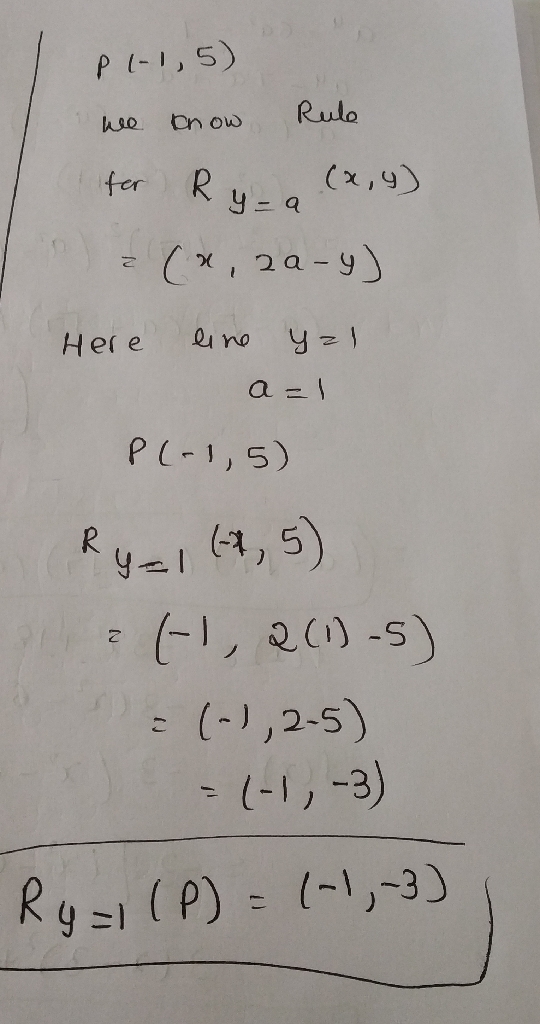 P(-1, 5)
we know Rule
for R y=a (x, y)
= (x, 2a-y)
Here line y=1
a=1
P(-1, 5)
R y=1 (-1, 5)
= (-1, 2(1)-5)
= (-1, 2-5)
= (-1, -3)
R y=1 (P) = (-1, -3)